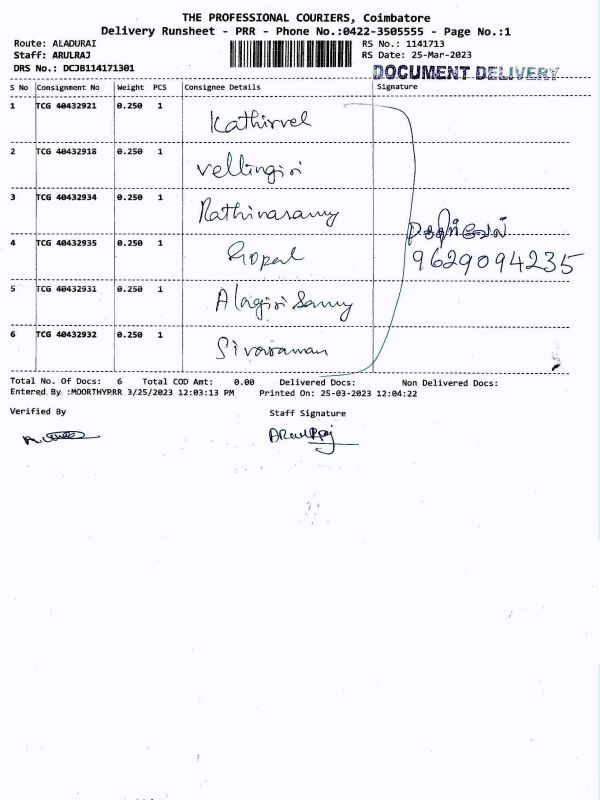 THE PROFESSIONAL COURIERS, Coimbatore
Delivery Runsheet - PRR - Phone No.:0422-3505555 - Page No.:1
Route: ALADURAI RS No.: 1141713
Staff: ARULRAJ RS Date: 25-Mar-2023
DRS No.: DCJB114171301 DOCUMENT DELIVERY
S No Consignment No Weight PCS Consignee Details Signature
1 TCG 40432921 0.250 1 Kathirvel
2 TCG 40432918 0.250 1 Vellingiri
3 TCG 40432934 0.250 1 Rathinasamy
கதிர்வேல்
4 TCG 40432935 0.250 1 Gopal 9629094235
5 TCG 40432931 0.250 1 Alagiri Samy
6 TCG 40432932 0.250 1 Sivaraman
Total No. Of Docs: 6 Total COD Amt: 0.00 Delivered Docs: Non Delivered Docs:
Entered By :MOORTHYPRR 3/25/2023 12:03:13 PM Printed On: 25-03-2023 12:04:22
Verified By Staff Signature
ARaulRaj